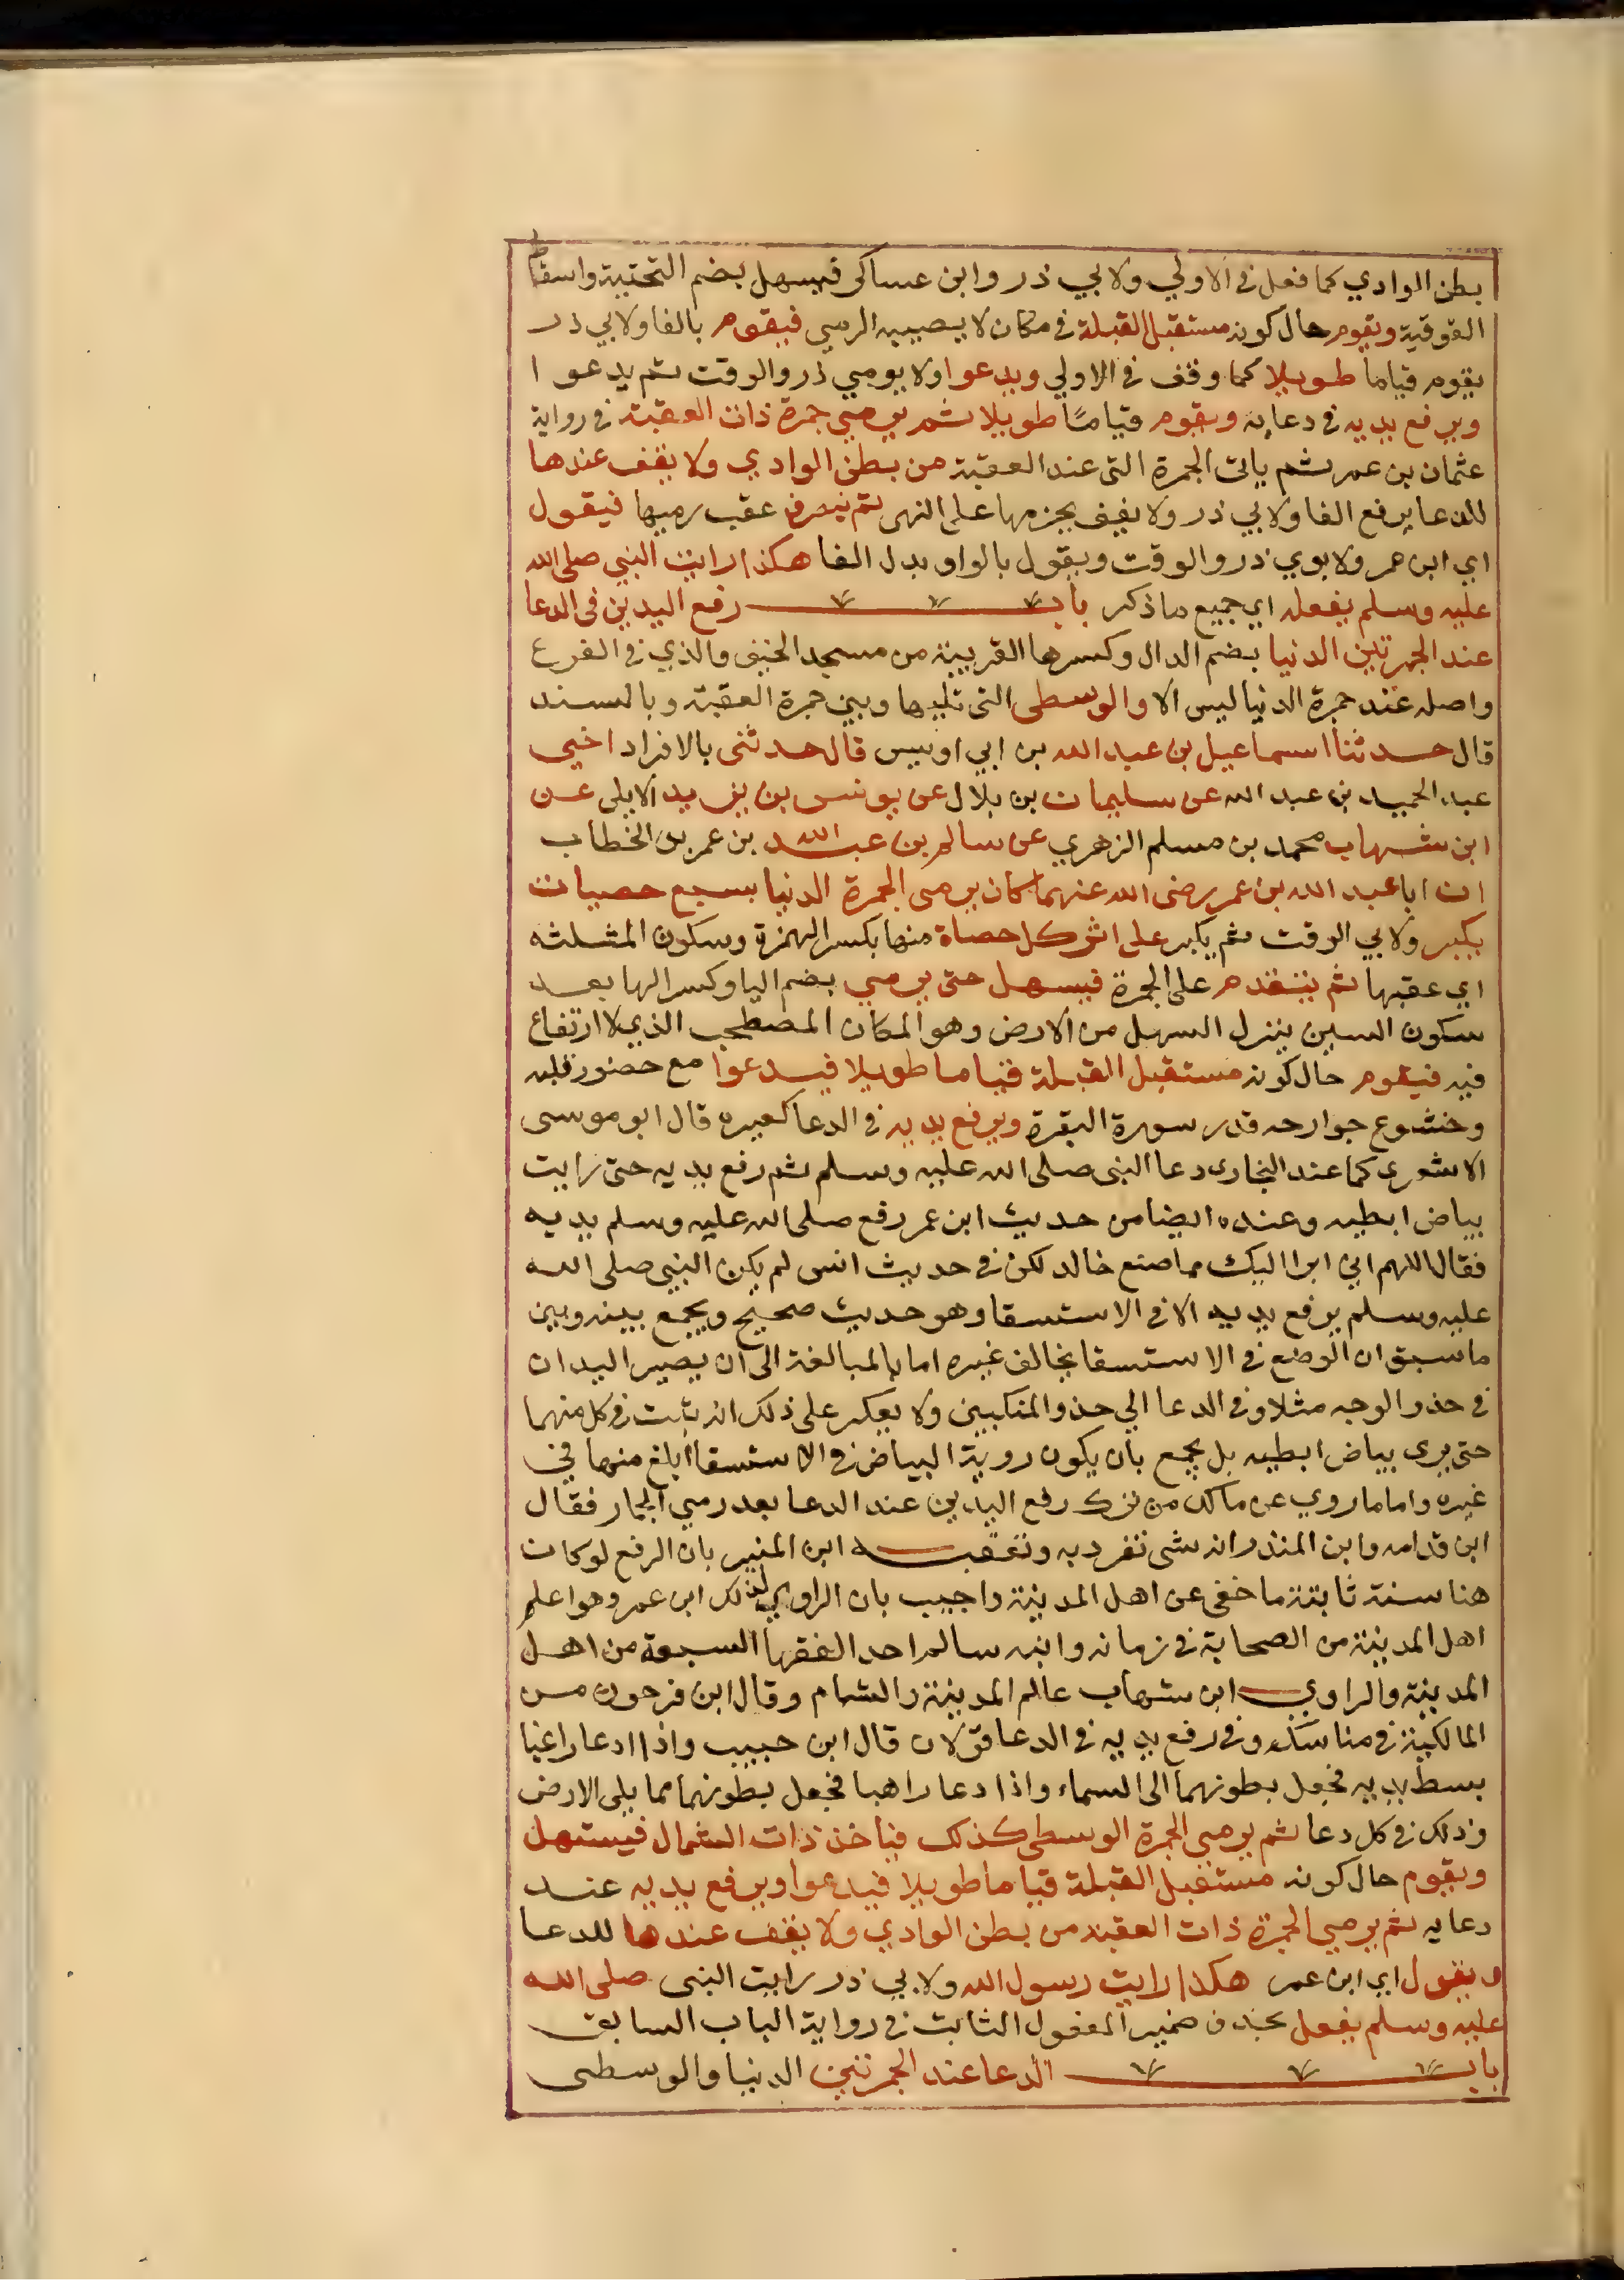 بطن الوادي كما فعل في الاولي ولابي ذر وابن عساكر فيسهل بضم التحتية واسقاط
الفوقية ويقوم حال كونه مستقبل القبلة في مكان لا يصيبه الرمي فيقوم بالفا ولابي ذر
يقوم قياما طويلا كما وقف في الاولي ويدعوا ولابوي ذر والوقت ثم يدعوا
ويرفع يديه في دعايه ويقوم قيامًا طويلا ثم يرمي جمرة ذات العقبة في رواية
عثمان بن عمر ثم ياتي الجمرة التي عند العقبة من بطن الوادي ولا يقف عندها
للدعا برفع الفا ولابي ذر ولا يقف بجزمها على النهى ثم ينصرف عقب رميها فيقول
اي ابن عمر ولابوي ذر والوقت ويقول بالواو بدل الفا هكذا رايت النبي صلى الله
عليه وسلم يفعله اي جميع ما ذكر باب رفع اليدين في الدعا
عند الجمرتين الدنيا بضم الدال وكسرها القريبة من مسجد الخيف والذي في الفرع
واصله عند جمرة الدنيا ليس الا والوسطى التي تليها وبين جمرة العقبة وبالسند
قال حدثنا اسماعيل بن عبد الله بن ابي اويس قال حدثني بالافراد اخي
عبد الحميد بن عبد الله عن سليمان بن بلال عن يونس بن يزيد الايلي عن
ابن شهاب محمد بن مسلم الزهري عن سالم بن عبد الله بن عمر بن الخطاب
ان اباه عبد الله بن عمر رضى الله عنهما كان يرمى الجمرة الدنيا بسبع حصيات
يكبر ولابي الوقت ثم يكبر على اثر كل حصاة منها بكسر الهمزة وسكون المثلثه
اي عقبها ثم يتقدم على الجمرة فيسهل حتى يرمي بضم اليا وكسر الها بعد
سكون السين ينزل السهل من الارض وهو المكان المصطحب الذي لا ارتفاع
فيه فيقوم حال كونه مستقبل القبلة قياما طويلا فيدعوا مع حضور قلبه
وخشوع جوارحه قدر سورة البقرة ويرفع يديه في الدعا كغيره قال ابو موسى
الاشعرى كما عند البخارى دعا النبى صلى الله عليه وسلم ثم رفع يديه حتى رايت
بياض ابطيه وعنده ايضا من حديث ابن عمر رفع صلى الله عليه وسلم يديه
فقال اللهم اني ابرا اليك مما صنع خالد لكن في حديث انس لم يكن النبي صلى الله
عليه وسلم يرفع يديه الا في الاستسقا وهو حديث صحيح ويجمع بينه وبين
ما سبق ان الرفع في الاستسقا يخالف غيره اما بالمبالغة الى ان يصير اليدان
في حذو الوجه مثلا وفي الدعا الي حذو المنكبين ولا يعكر على ذلك انه ثبت في كل منهما
حتى يرى بياض ابطيه بل يجمع بان يكون روية البياض في الاستسقا ابلغ منها في
غيره واما ما روي عن مالك من ترك رفع اليدين عند الدعا بعد رمي الجمار فقال
ابن قدامه وابن المنذر انه شى تفرد به وتعقبه ابن المنير بان الرفع لو كان
هنا سنة ثابتة ما خفى عن اهل المدينة واجيب بان الراوي لذلك ابن عمر وهو اعلم
اهل المدينة من الصحابة في زمانه وابنه سالم احد الفقها السبعة من اهل
المدينة والراوي ابن شهاب عالم المدينة والشام وقال ابن فرحون من
المالكية في مناسكه وفي رفع يديه في الدعا قولان قال ابن حبيب واذا دعا راغبا
بسط يديه فجعل بطونهما الى السماء واذا دعا راهبا فجعل بطونهما مما يلى الارض
وذلك في كل دعا ثم يرمى الجمرة الوسطى كذلك فياخذ ذات الشمال فيستهل
ويقوم حال كونه مستقبل القبلة قياما طويلا فيدعوا ويرفع يديه عند
دعايه ثم يرمي الجمرة ذات العقبه من بطن الوادي ولا يقف عندها للدعا
ويقول اي ابن عمر هكذا رايت رسول الله ولابي ذر رايت النبى صلى الله
عليه وسلم يفعل بحذف ضمير المفعول الثابت في رواية الباب السابق
باب الدعا عند الجمرتين الدنيا والوسطى